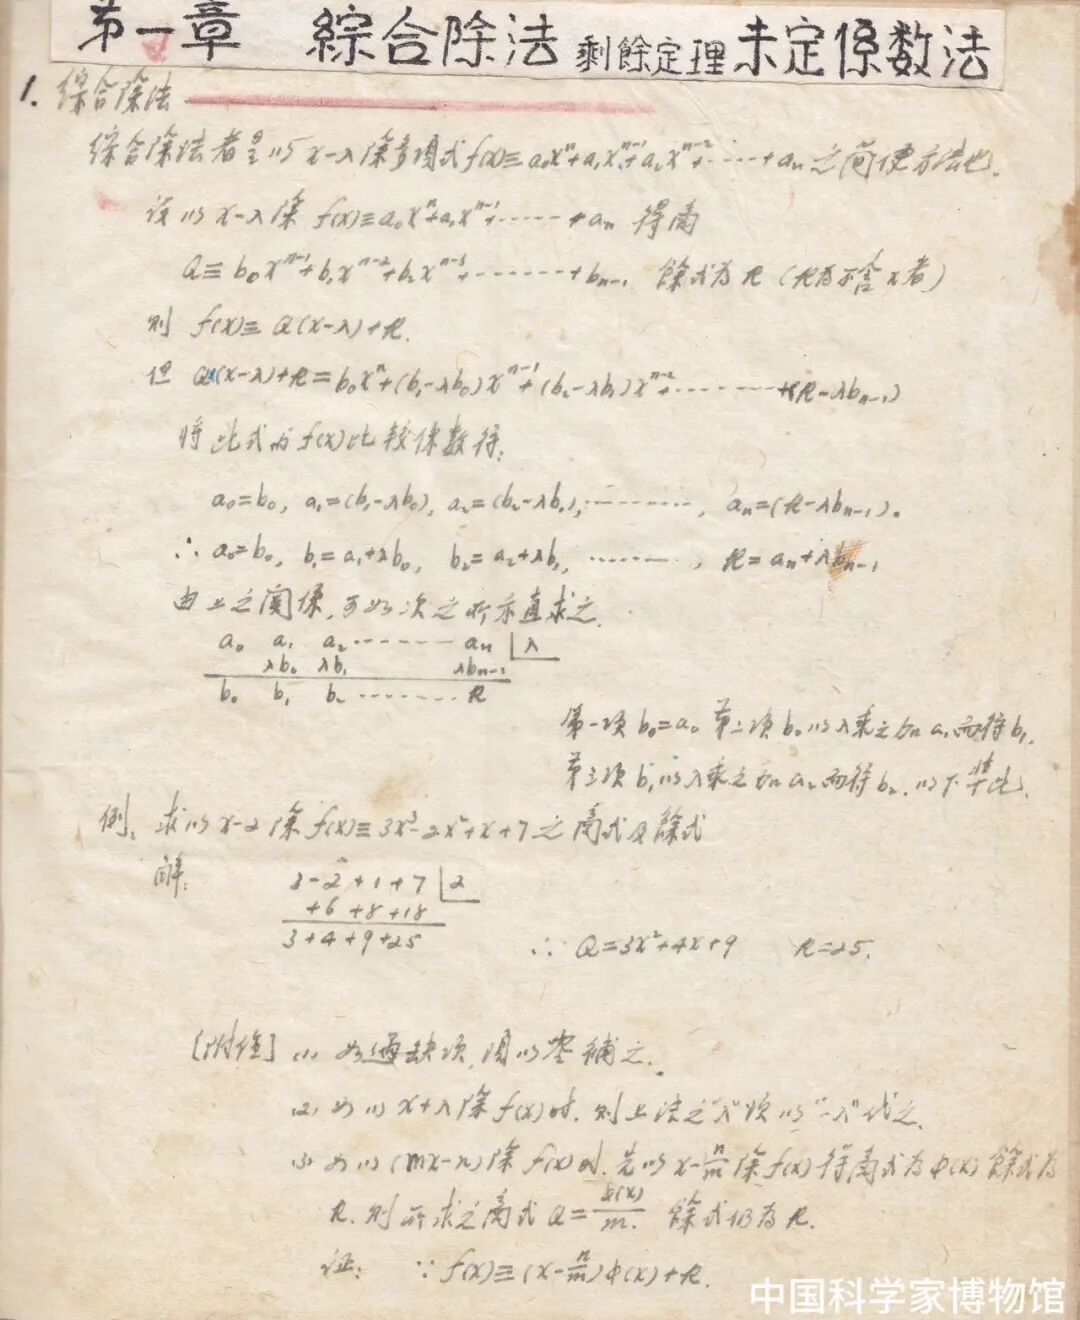 第一章 綜合除法 剩餘定理 未定係数法
1. 綜合除法
綜合除法者是以 x-λ 除多項式 f(x)≡a₀xⁿ+a₁xⁿ⁻¹+a₂xⁿ⁻²+……+aₙ 之简便方法也.
设以 x-λ 除 f(x)≡a₀xⁿ+a₁xⁿ⁻¹+……+aₙ 得商
Q≡b₀xⁿ⁻¹+b₁xⁿ⁻²+b₂xⁿ⁻³+………+bₙ₋₁ 餘式为 R (R为不含 x 者)
则 f(x)≡Q(x-λ)+R.
但 Q(x-λ)+R=b₀xⁿ+(b₁-λb₀)xⁿ⁻¹+(b₂-λb₁)xⁿ⁻²+………+(R-λbₙ₋₁)
将此式与 f(x) 比较係数得:
a₀=b₀, a₁=(b₁-λb₀), a₂=(b₂-λb₁),………, aₙ=(R-λbₙ₋₁).
∴ a₀=b₀, b₁=a₁+λb₀, b₂=a₂+λb₁, ………, R=aₙ+λbₙ₋₁
由上之関係,可如次之所示直求之.
a₀ a₁ a₂ ……… aₙ | λ
λb₀ λb₁ λbₙ₋₁
b₀ b₁ b₂ ……… R
第一项 b₀=a₀ 第二项 b₀以λ乘之加 a₁而得 b₁.
第三项 b₁以λ乘之加 a₂而得 b₂. 以下準此.
例. 求以 x-2 除 f(x)≡3x³-2x²+x+7 之商式及餘式
解:
3-2+1+7 | 2
+6+8+18
3+4+9+25
∴ Q=3x²+4x+9 R=25.
[附注] (1) 如遇缺项,须以零補之.
(2) 如以 x+λ 除 f(x) 时. 则上法之"λ"须以"-λ"代之.
(3) 如以 (mx-n) 除 f(x) 时. 先以 x-n/m 除 f(x) 得商式为 φ(x) 餘式为
R. 则所求之商式 Q=φ(x)/m. 餘式仍为 R.
证: ∵ f(x)≡(x-n/m)φ(x)+R.
中国科学家博物馆